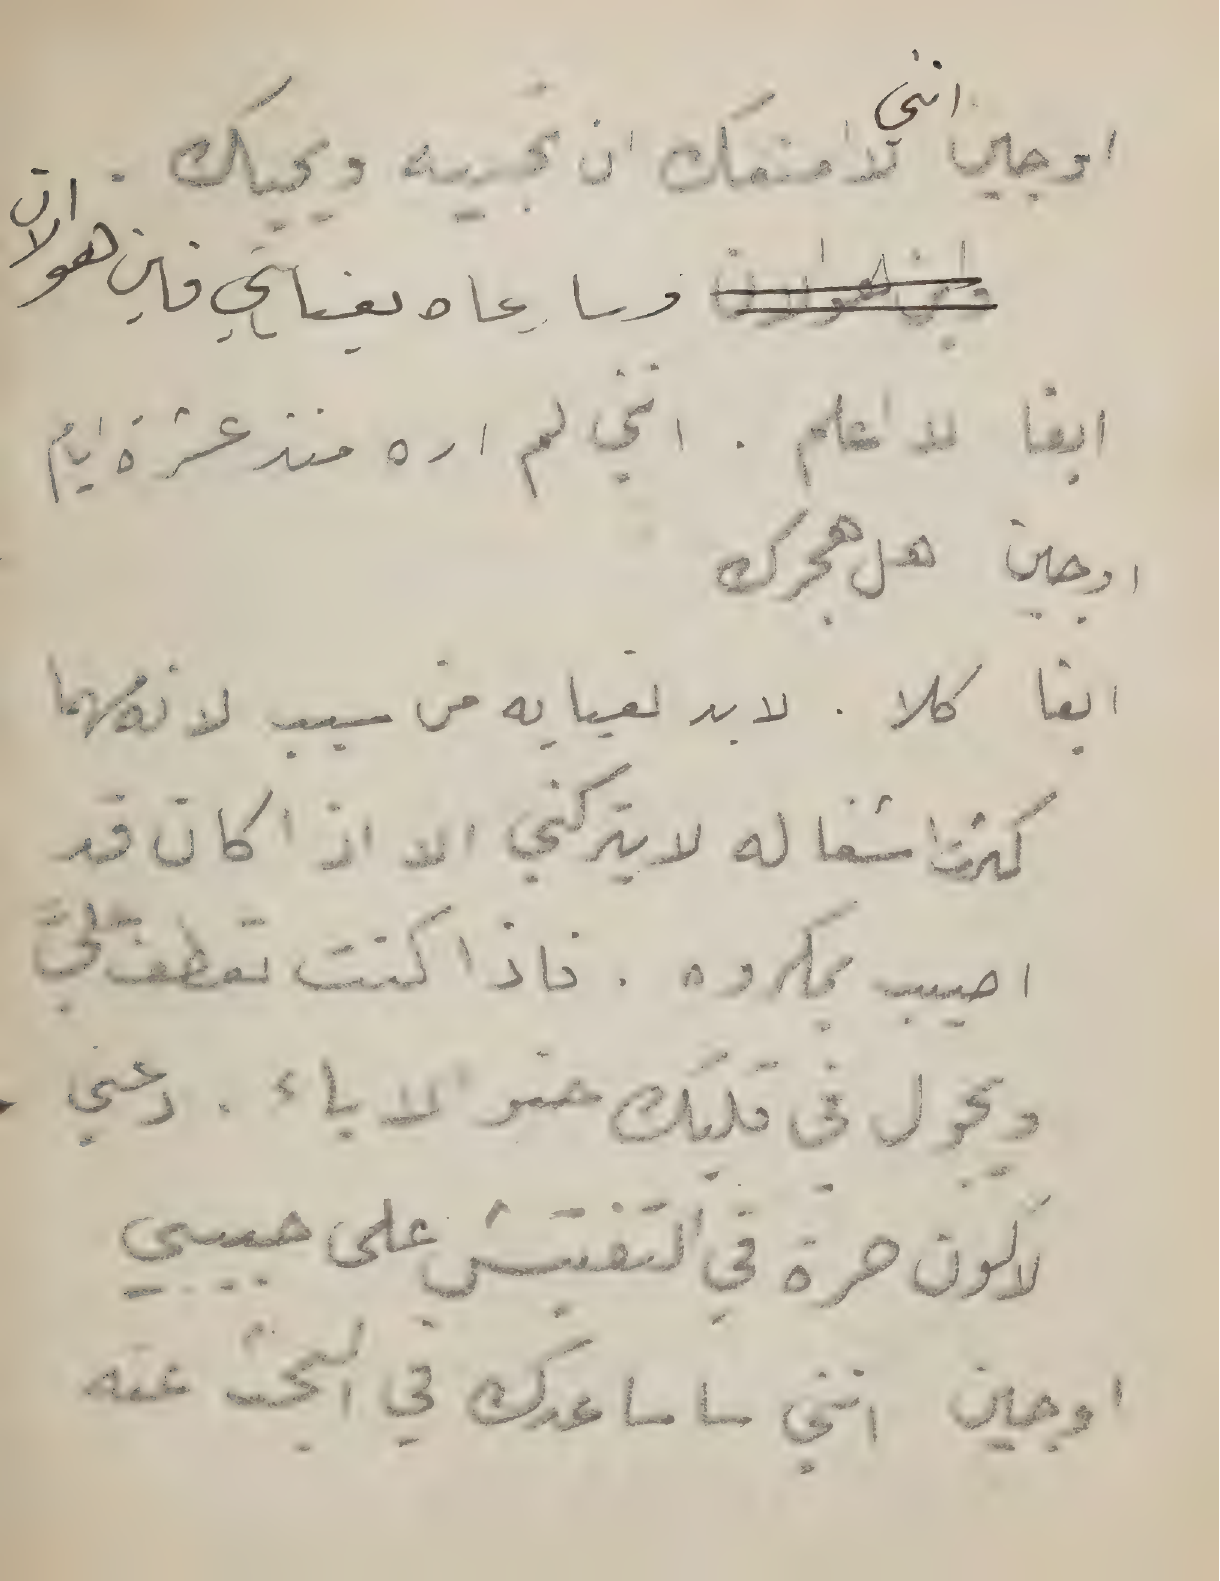 اوجين انني لا امنعك ان تحبيه ويحبك .
فاين هو الان وسارعاه بعنايتي فاين هو الان
ايفا لا اعلم . انني لم اره منذ عشرة ايام
اوجين هل هجرك
ايفا كلا . لا بد لغيابه من سبب لانه مهما
كثرت اشغاله لا يتركني الا اذا كان قد
اصيب بمكروه . فاذا كنت تعطف عليّ
ويجول في قلبك حنو الاباء . دعني
لاكون حرة في التفتيش على حبيبي
اوجين انني ساساعدك في البحث عنه